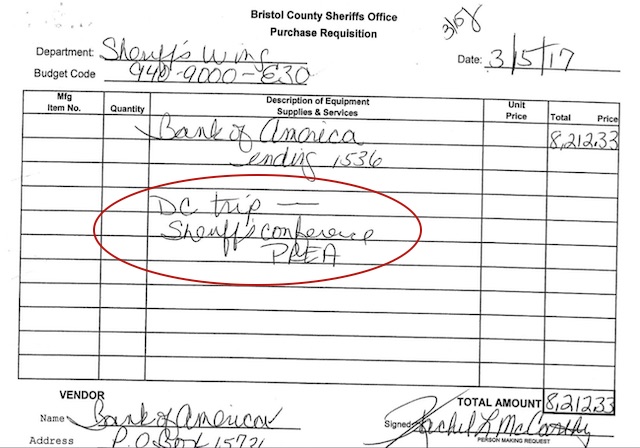 Bristol County Sheriffs Office
Purchase Requisition
3/08
Department: Sheriff's Wing
Date: 3/5/17
Budget Code 940-9000-E30
Mfg Item No. Quantity Description of Equipment Supplies & Services Unit Price Total Price
Bank of America 8,212.33
ending 1536
DC trip —
Sheriff's conference
PREA
VENDOR
TOTAL AMOUNT 8,212.33
Name Bank of America
Signed Rachel L McCarthy
PERSON MAKING REQUEST
Address P.O Box 15721